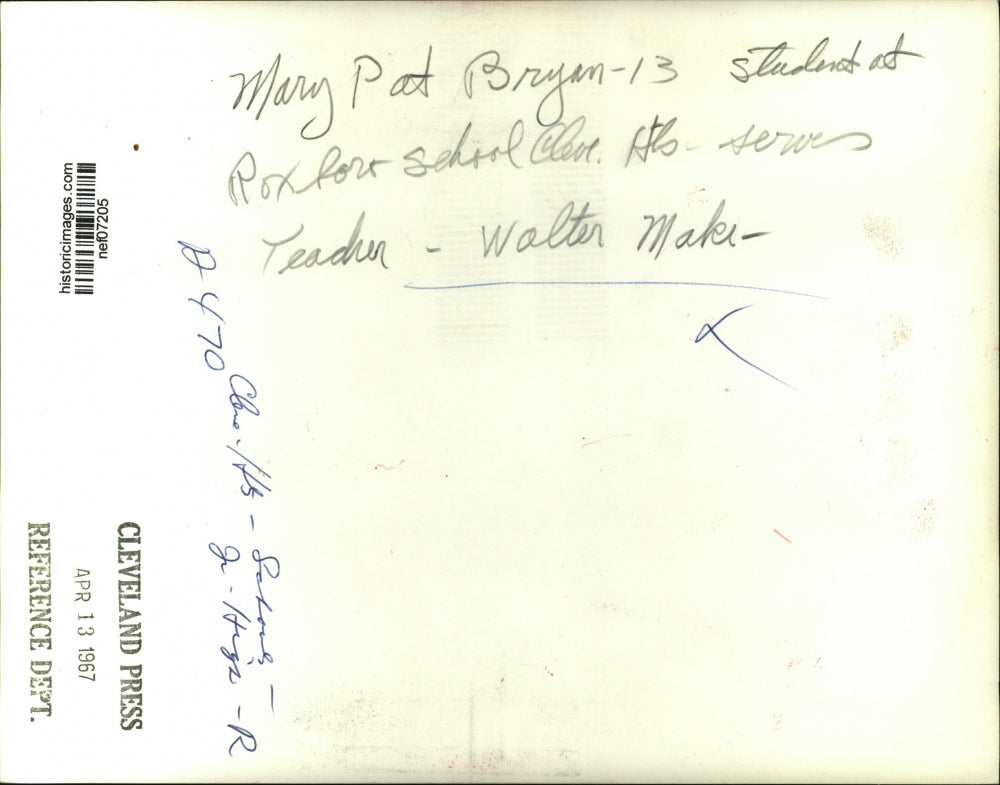 Mary Pat Bryan-13 student at
Roxboro school Cleve. Hts- serves
Teacher - Walter Maki-
A 470
Cleve. Hts - Schools -
Jr - High - R
historicimages.com
nef07205
CLEVELAND PRESS
APR 13 1967
REFERENCE DEPT.